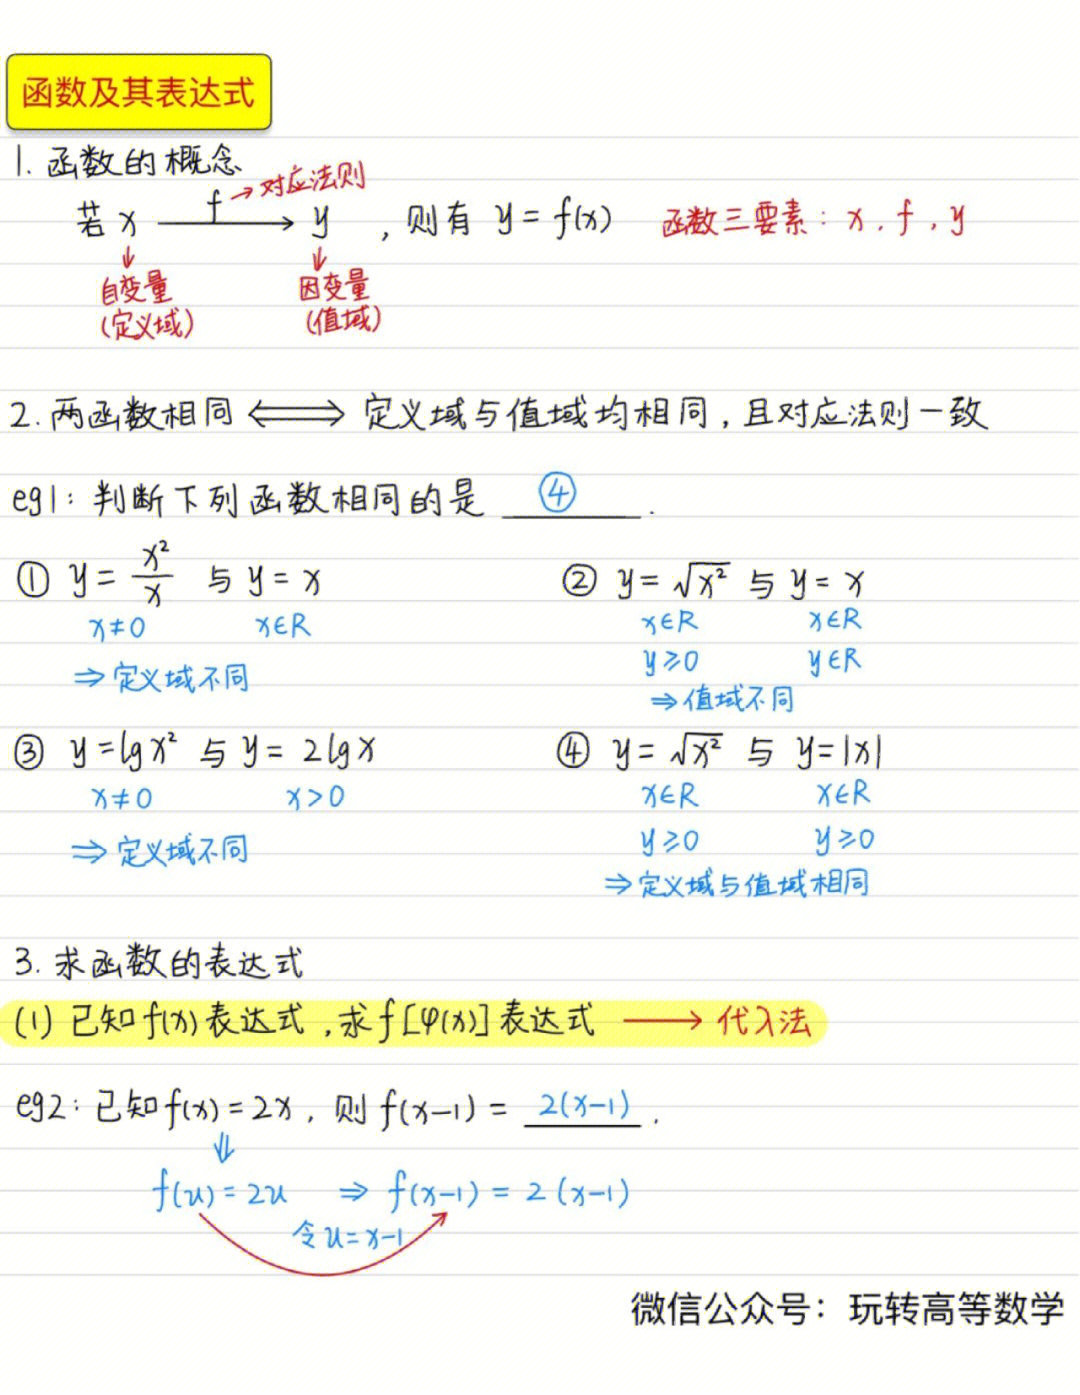 函数及其表达式
1. 函数的概念
若 x —f→ y ，则有 y = f(x) 函数三要素：x . f . y
f → 对应法则
↓ ↓
自变量 因变量
(定义域) (值域)
2. 两函数相同 ⟺ 定义域与值域均相同，且对应法则一致
eg1：判断下列函数相同的是 ④ .
① y = x²/x 与 y = x ② y = √x² 与 y = x
x≠0 x∈R x∈R x∈R
y≥0 y∈R
⇒ 定义域不同 ⇒ 值域不同
③ y = lg x² 与 y = 2lgx ④ y = √x² 与 y = |x|
x≠0 x>0 x∈R x∈R
⇒ 定义域不同 y≥0 y≥0
⇒ 定义域与值域相同
3. 求函数的表达式
(1) 已知f(x)表达式，求f[φ(x)]表达式 → 代入法
eg2：已知f(x) = 2x，则 f(x-1) = 2(x-1) .
⇓
f(u) = 2u ⇒ f(x-1) = 2(x-1)
令u=x-1
微信公众号：玩转高等数学